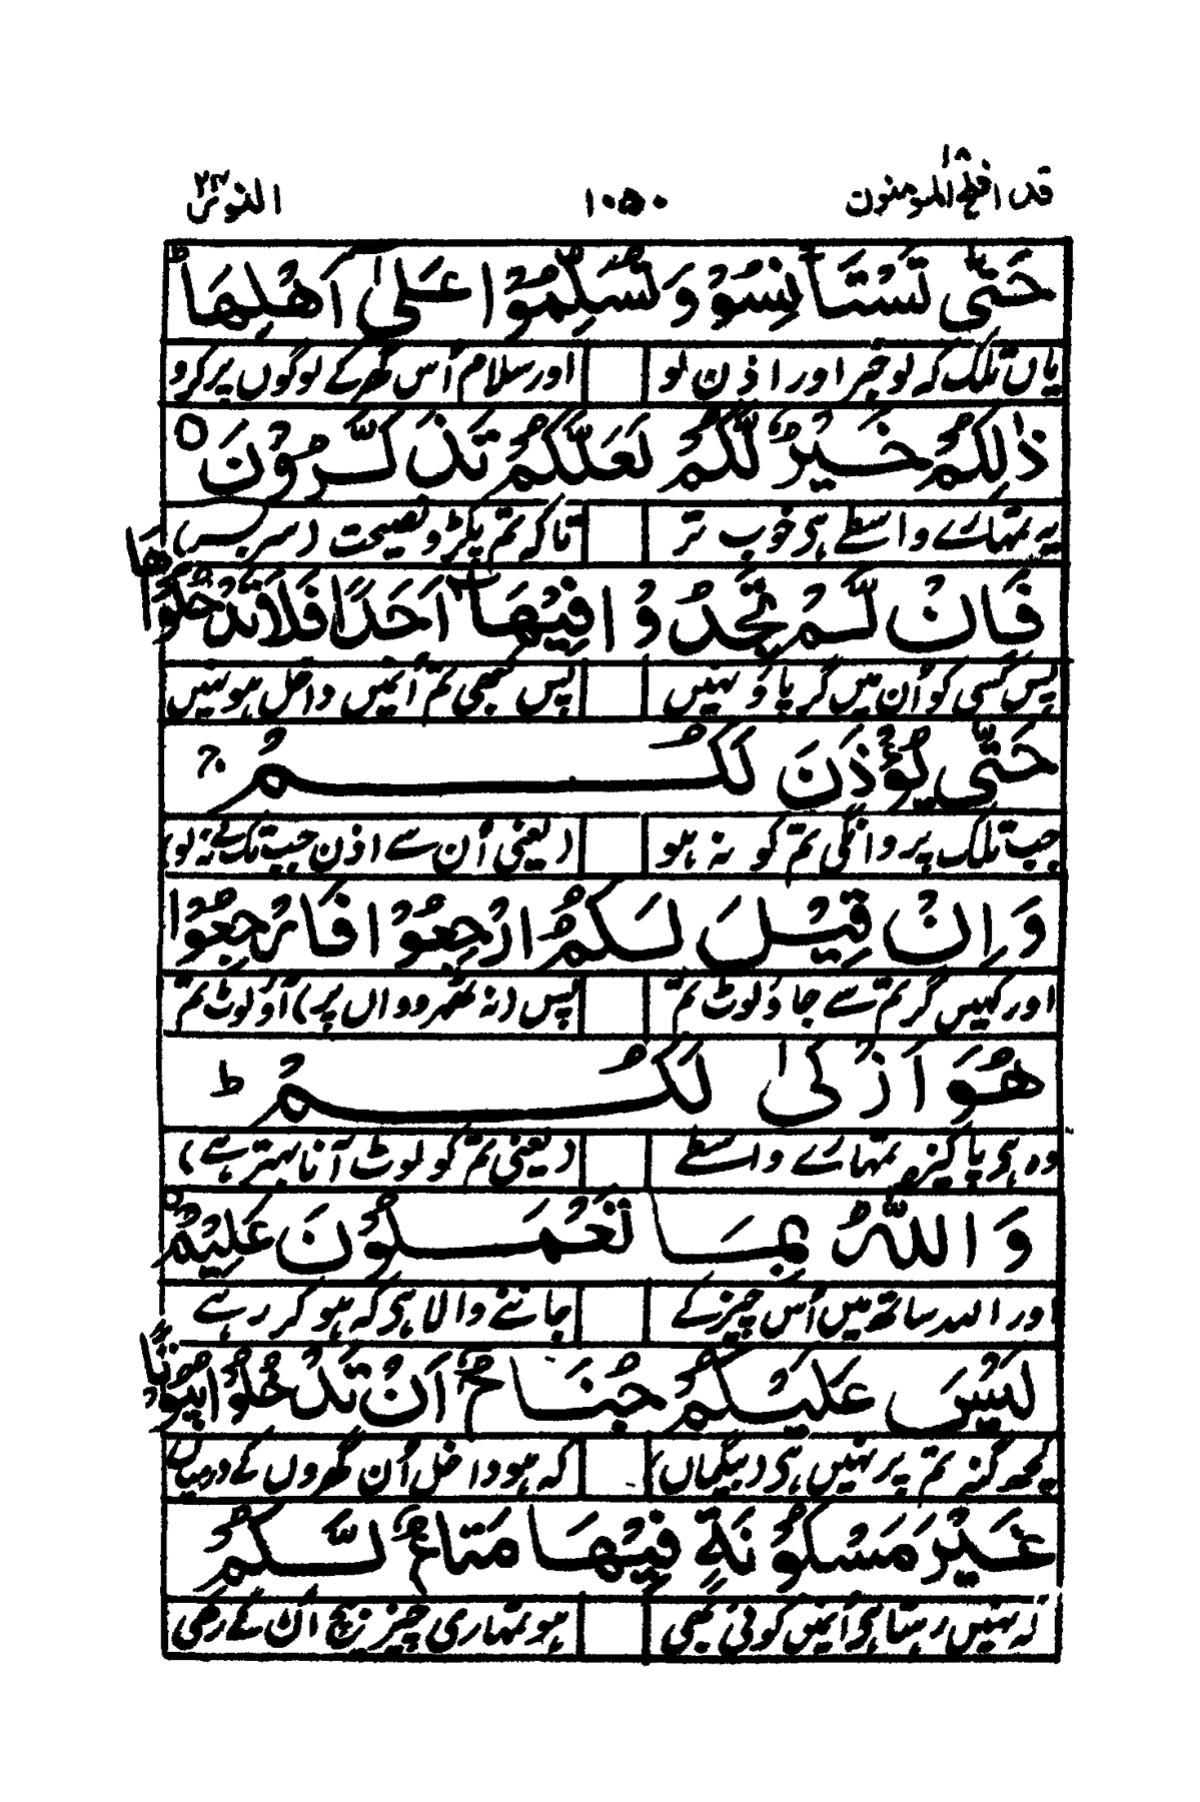 قد افلح المومنون ۱۸
۱۰۵۰
النور ۲۴
حَتّٰى تَسْتَاْنِسُوْ وَ تُسَلِّمُوْا عَلٰٓى اَهْلِهَا ؕ
یاں تلک کہ لو خبر اور اذن لو اور سلام اُس گھر کے لوگوں پر کرو
ذٰلِكُمْ خَيْرٌ لَّكُمْ لَعَلَّكُمْ تَذَكَّرُوْنَ ○
یہ تمہارے واسطے ہی خوب تر تاکہ تم پکڑو نصیحت (سربسر)
فَاِنْ لَّمْ تَجِدُوْا فِيْهَاۤ اَحَدًا فَلَا تَدْخُلُوْهَا
پس کسی کو اُن میں گر پاؤ نہیں پس کبھی تم اُنمیں داخل ہو نہیں
حَتّٰى يُؤْذَنَ لَكُمْ ۚ
جب تلک پروانگی تم کو نہ ہو (یعنی اُن سے اذن جب تک لے نہ لو)
وَ اِنْ قِيْلَ لَكُمُ ارْجِعُوْا فَارْجِعُوْا
اور کہیں گر تم سے جاؤ لوٹ تم پس (نہ ٹھہرو واں پر) آؤ لوٹ تم
هُوَ اَزْكٰى لَكُمْ ؕ
وہ ہی پاکیزہ تمہارے واسطے (یعنی تم کو لوٹ آنا بہتر ہے)
وَ اللّٰهُ بِمَا تَعْمَلُوْنَ عَلِيْمٌ ○
اور اللہ ساتھ میں اُس چیز کے جاننے والا ہی کہ ہو کر رہے
لَيْسَ عَلَيْكُمْ جُنَاحٌ اَنْ تَدْخُلُوْا بُيُوْتًا
کچھ گنہ تم پر نہیں ہی (بیگماں) کہ ہو داخل اُن گھروں کے درمیاں
غَيْرَ مَسْكُوْنَةٍ فِيْهَا مَتَاعٌ لَّكُمْ
کہ نہیں رہتا ہی اُنمیں کوئی بھی ہو تمہاری چیز بیچ اُن کے رکھی